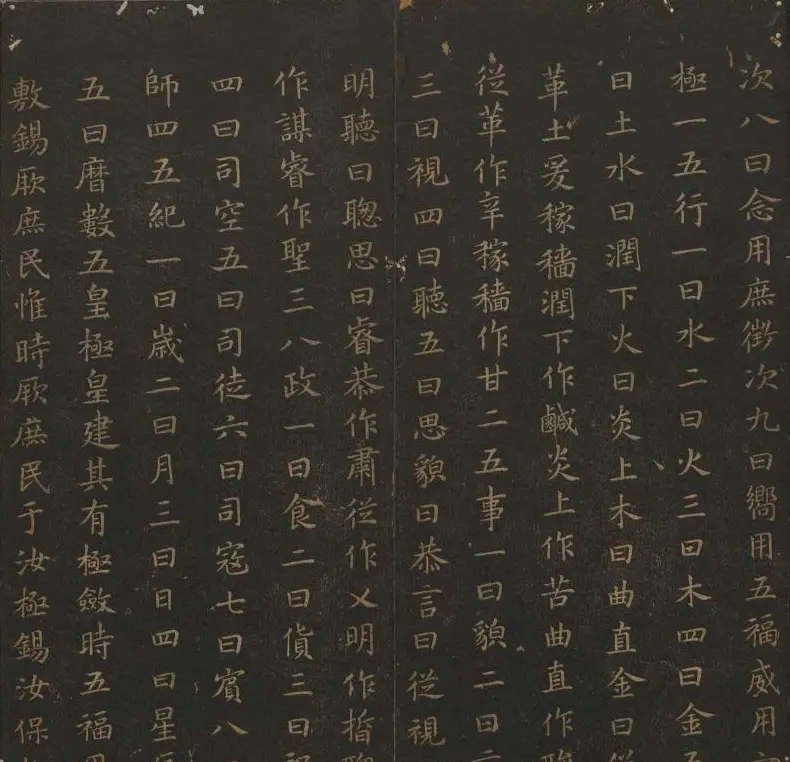 次八曰念用庶徵次九曰嚮用五福威用
極一五行一曰水二曰火三曰木四曰金
曰土水曰潤下火曰炎上木曰曲直金曰
革土爰稼穡潤下作鹹炎上作苦曲直作
從革作辛稼穡作甘二五事一曰貌二曰
三曰視四曰聽五曰思貌曰恭言曰從視
明聽曰聰思曰睿恭作肅從作乂明作哲
作謀睿作聖三八政一曰食二曰貨三曰
四曰司空五曰司徒六曰司寇七曰賓八
師四五紀一曰歲二曰月三曰日四曰星
五曰曆數五皇極皇建其有極斂時五福
敷錫厥庶民惟時厥庶民于汝極錫汝保